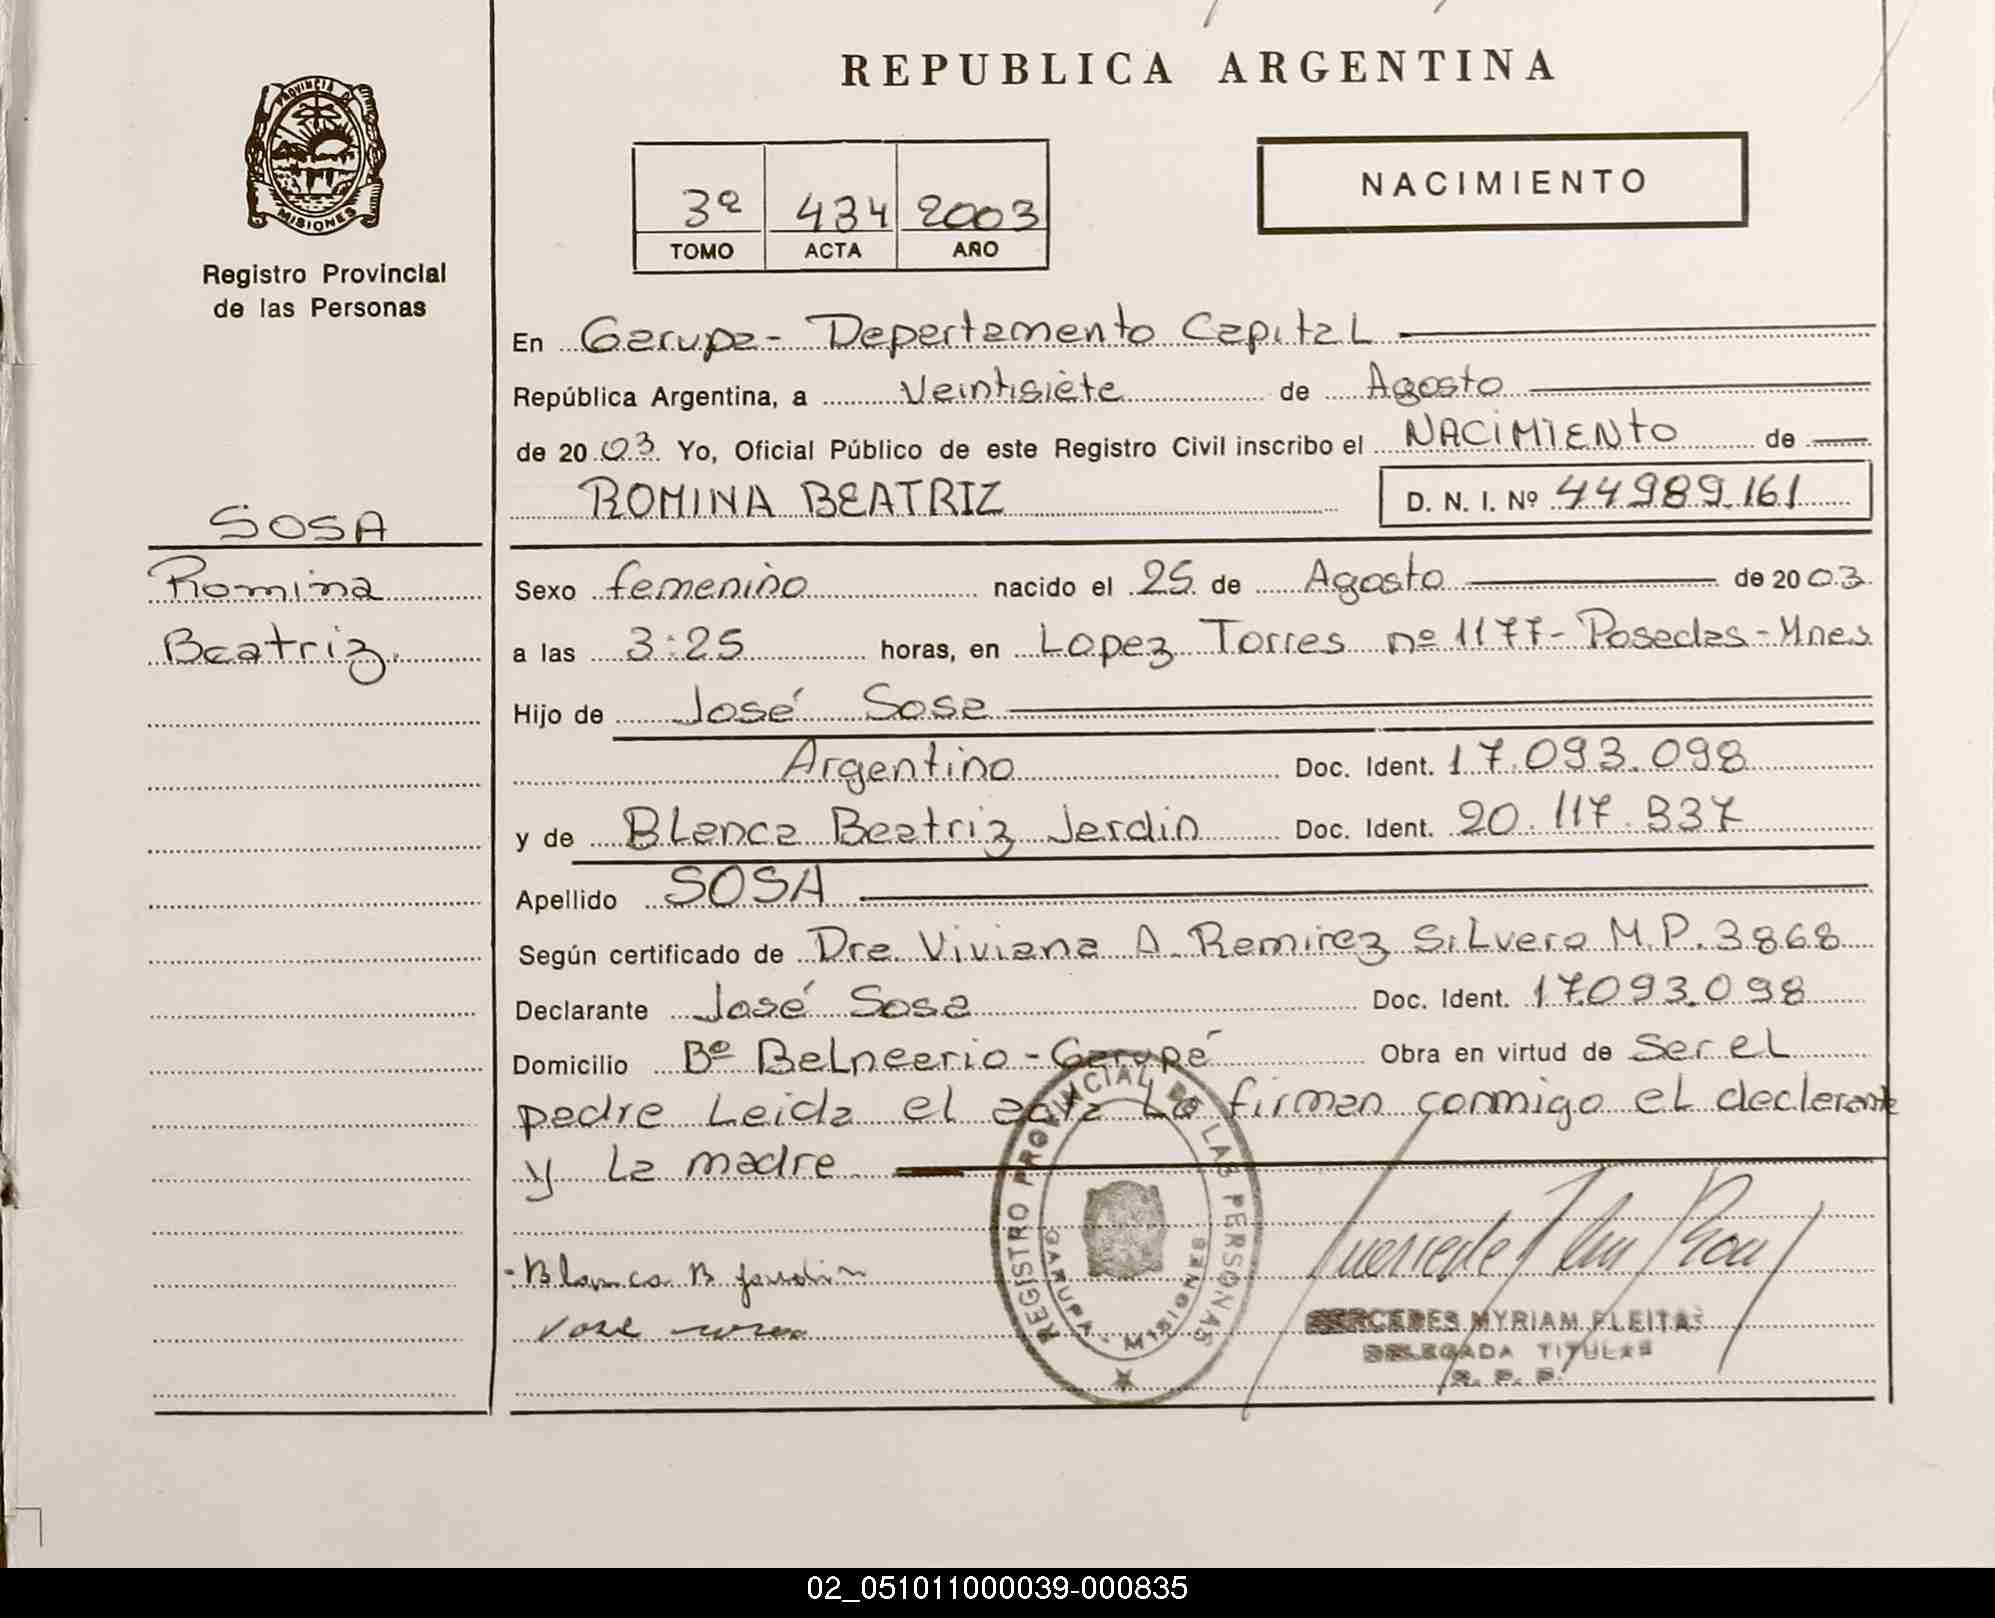 REPUBLICA ARGENTINA
PROVINCIA DE
MISIONES
Registro Provincial
de las Personas
3º 434 2003
TOMO ACTA AÑO
NACIMIENTO
En Garupa - Departamento Capital
República Argentina, a Veintisiete de Agosto
de 2003 Yo, Oficial Público de este Registro Civil inscribo el NACIMIENTO de
ROMINA BEATRIZ D. N. I. Nº 44989161
SOSA
Romina
Beatriz.
Sexo femenino nacido el 25 de Agosto de 2003
a las 3:25 horas, en Lopez Torres nº 1177 - Posadas - Mnes
Hijo de José Sosa
Argentino Doc. Ident. 17.093.098
y de Blanca Beatriz Jardin Doc. Ident. 20.117.337
Apellido SOSA
Según certificado de Dra. Viviana A. Ramirez Silvero M.P. 3868
Declarante José Sosa Doc. Ident. 17093.098
Domicilio Bº Balneario - Garupá Obra en virtud de ser el
padre Leida el acta La firman conmigo el declarante
y La madre
REGISTRO PROVINCIAL DE LAS PERSONAS
GARUPA - MISIONES
Blanca B Jardin
José Sosa
MERCEDES MYRIAM FLEITAS
DELEGADA TITULAR
R. P. P.
02_051011000039-000835